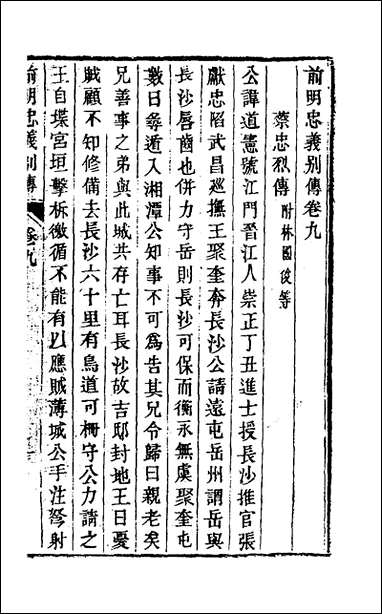 前明忠義别傳卷九
蔡忠烈傳 附林國俊等
公諱道憲號江門晉江人崇正丁丑進士授長沙推官張
獻忠陷武昌巡撫王聚奎奔長沙公請遠屯岳州謂岳與
長沙唇齒也併力守岳則長沙可保而衡永無虞聚奎屯
數日尋遁入湘潭公知事不可為告其兄令歸曰親老矣
兄善事之弟與此城共存亡耳長沙故吉邸封地王日憂
賊顧不知修備去長沙六十里有鳥道可柵守公力請之
王自堞宮垣擊柝徼循不能有以應賊薄城公手注弩射
前明忠義别傳 卷九